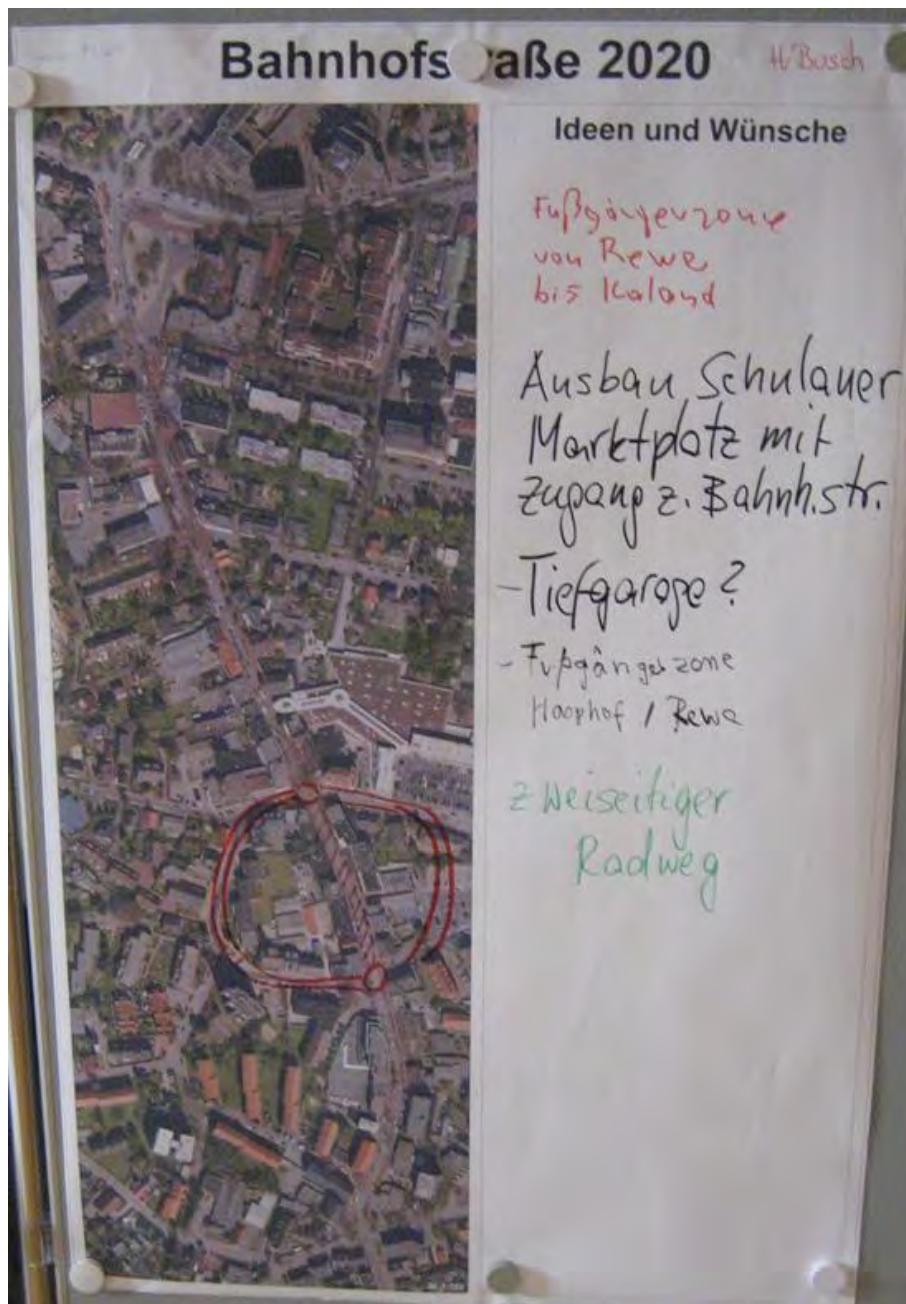 Bahnhofstraße 2020
H. Busch
Ideen und Wünsche
Fußgängerzone
von Rewe
bis Kaland
Ausbau Schulauer
Marktplatz mit
Zugang z. Bahnh.str.
- Tiefgarage?
- Fußgängerzone
/ Rewe
zweiseitiger
Radweg